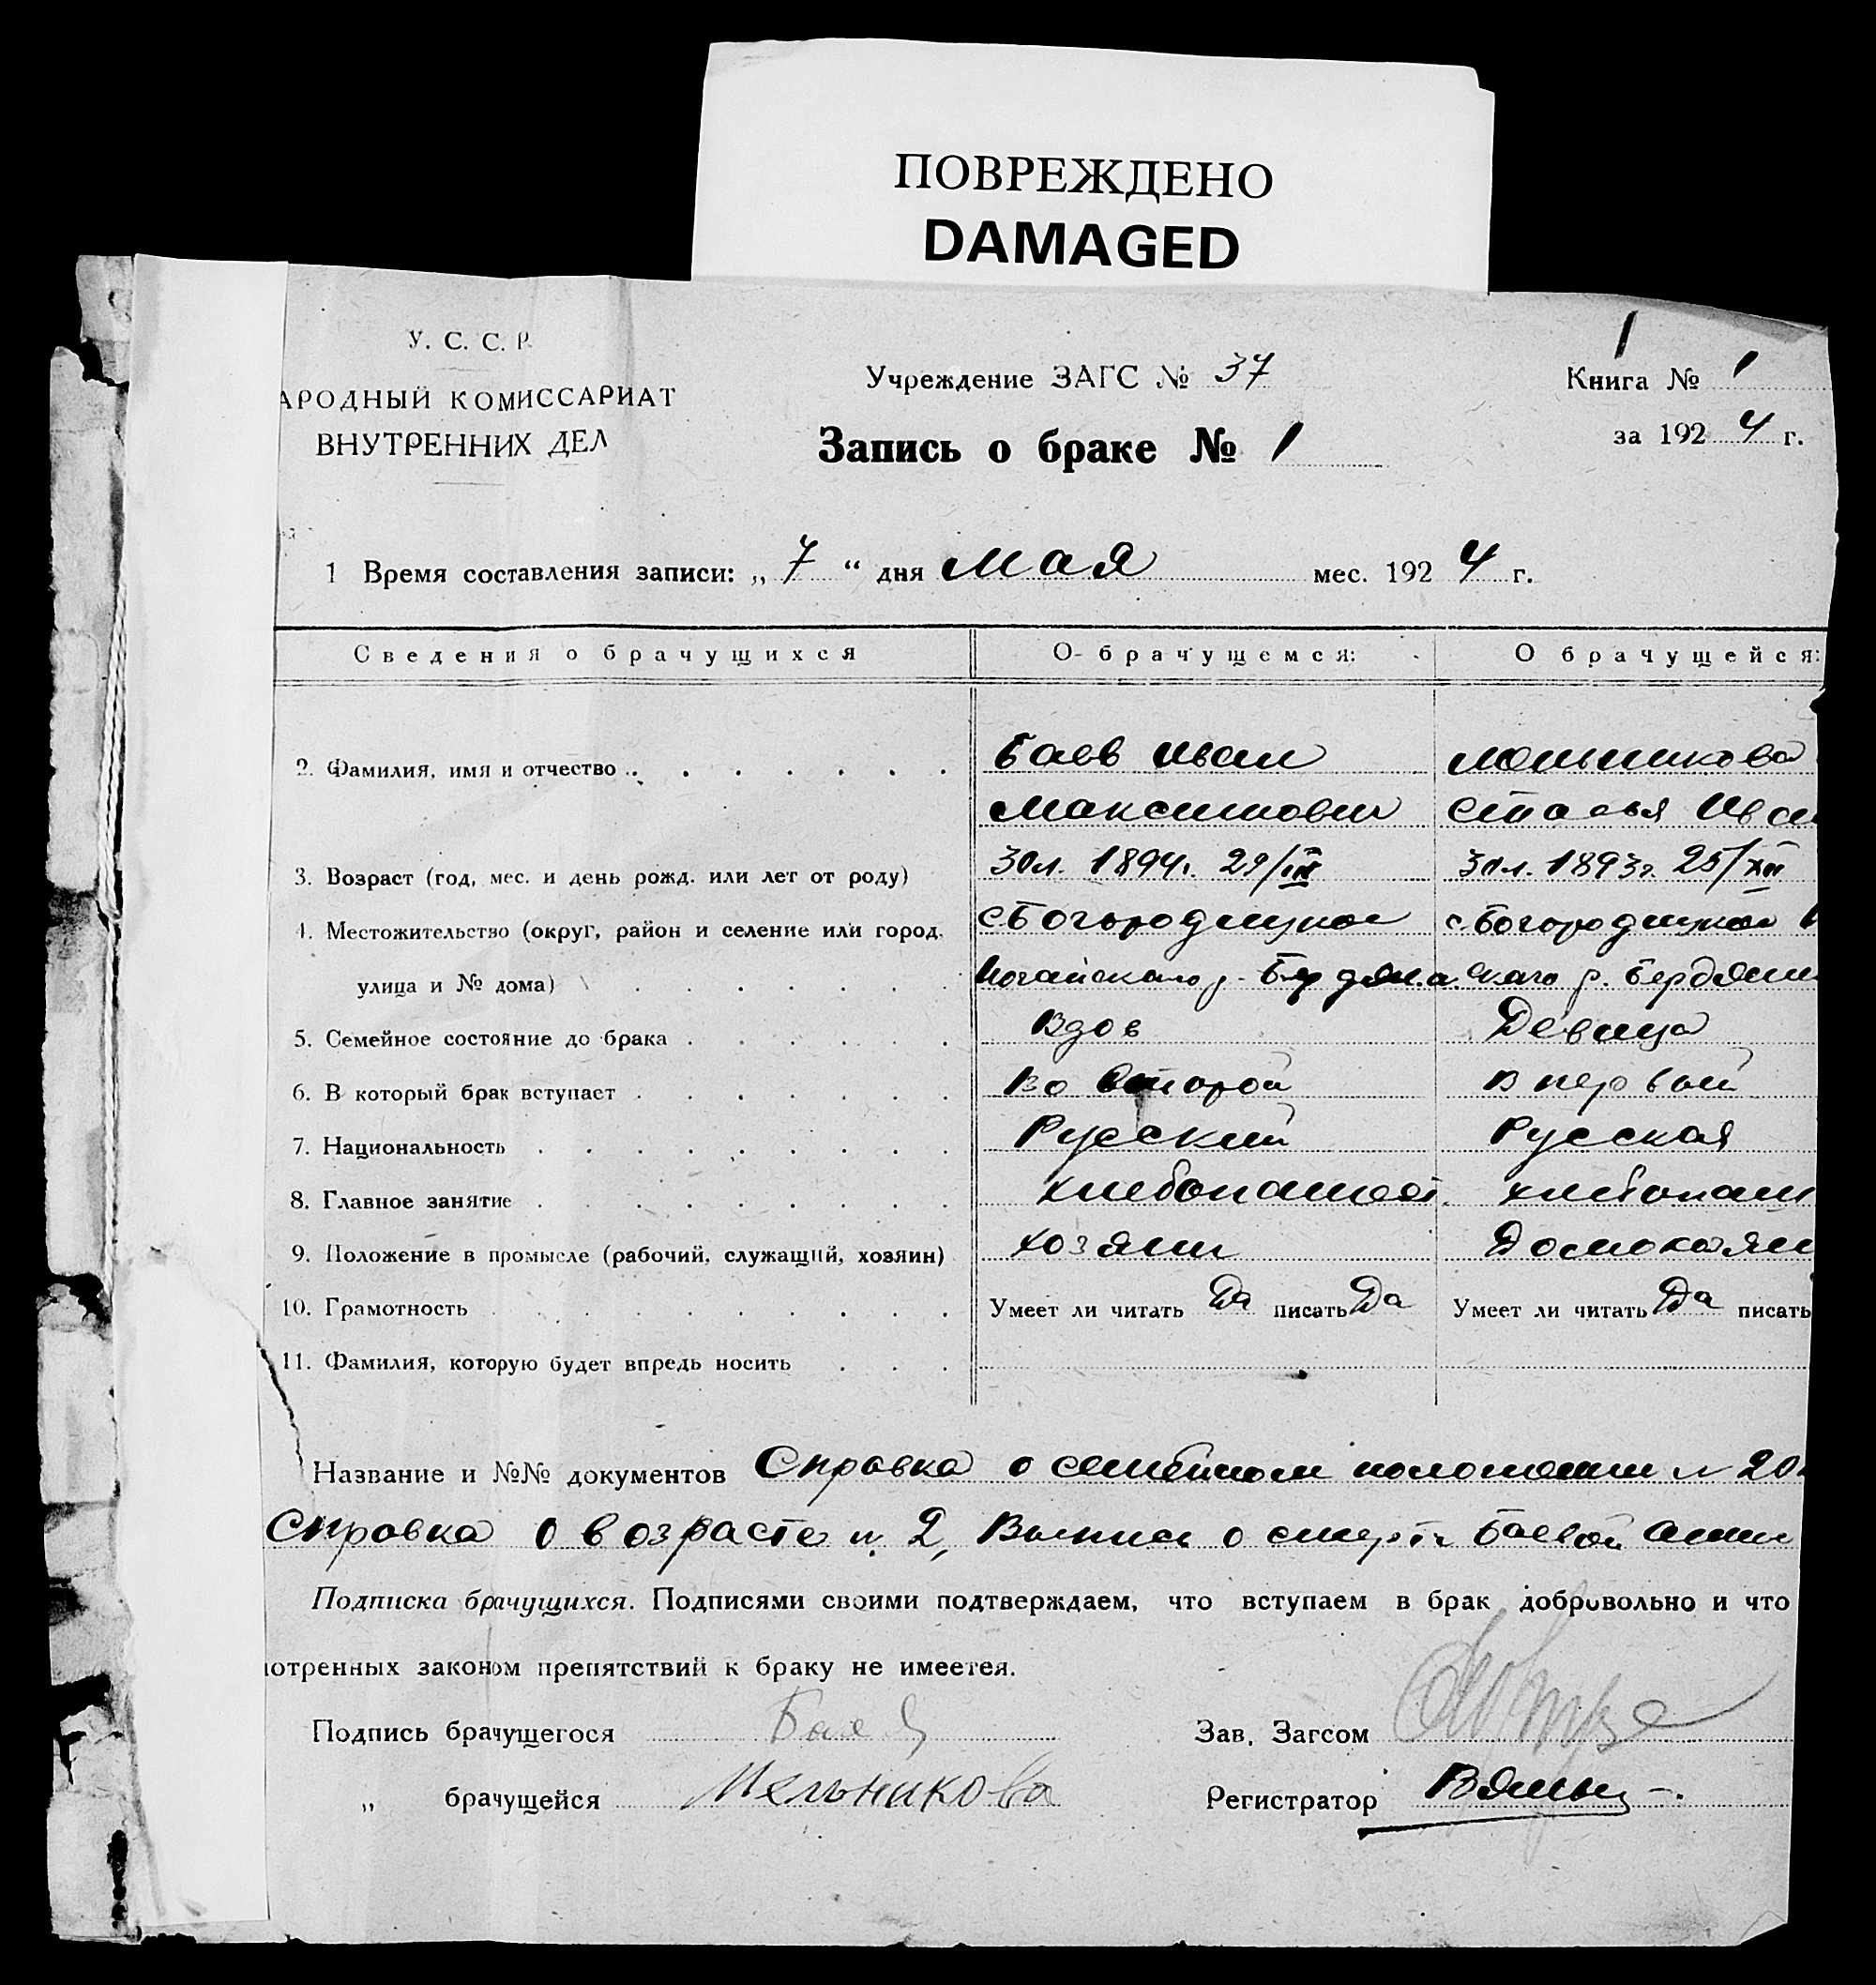 ПОВРЕЖДЕНО
DAMAGED
У. С. С. Р.
АРОДНЫЙ КОМИССАРИАТ
ВНУТРЕННИХ ДЕЛ
Учреждение ЗАГС № 37
Запись о браке № 1
1
Книга № 1
за 1924 г.
1 Время составления записи: „ 7 “ дня Мая мес. 1924 г.
Сведения о брачущихся О брачущемся: О брачущейся:
2. Фамилия, имя и отчество Баев Иван Мельникова
Максимович Иван
3. Возраст (год, мес. и день рожд. или лет от роду) 30 л. 1894 г. 29/III 30 л. 1893 г. 25/XII
4. Местожительство (округ, район и селение или город, с. Богородицкое с. Богородицкое
улица и № дома) Ногайского р. Бердян. о. ского р. Бердянс
5. Семейное состояние до брака Вдов Девица
6. В который брак вступает Во второй В первый
7. Национальность Русский Русская
8. Главное занятие хлебопашест. хлебопаш
9. Положение в промысле (рабочий, служащий, хозяин) хозяин Домохозяи
10. Грамотность Умеет ли читать Да писать Да Умеет ли читать Да писать
11. Фамилия, которую будет впредь носить
Название и №№ документов Справка о семейном положении № 20
Справка о возрасте № 2, Выпись о смерти Баевой Анны
Подписка брачущихся. Подписями своими подтверждаем, что вступаем в брак добровольно и что
отренных законом препятствий к браку не имеется.
Подпись брачущегося Баев Зав. Загсом
„ брачущейся Мельникова Регистратор